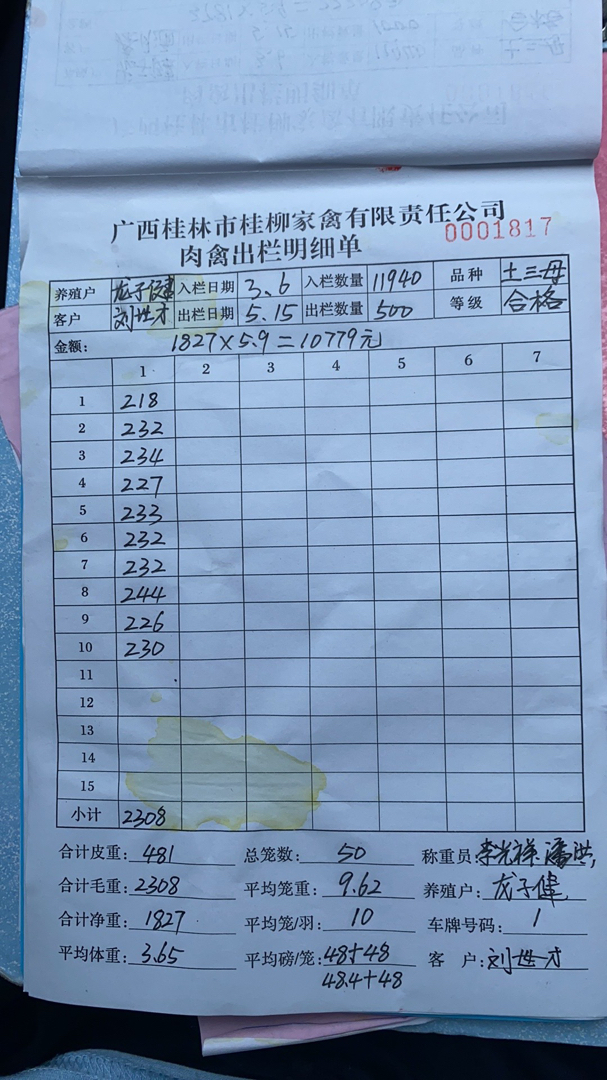 广西桂林市桂柳家禽有限责任公司
肉禽出栏明细单 0001817
养殖户 龙子健 入栏日期 3.6 入栏数量 11940 品种 土三母
客户 刘世才 出栏日期 5.15 出栏数量 500 等级 合格
金额: 1827×5.9=10779元
1 2 3 4 5 6 7
1 218
2 232
3 234
4 227
5 233
6 232
7 232
8 244
9 226
10 230
11
12
13
14
15
小计 2308
合计皮重: 481 总笼数: 50 称重员: 李光祥 潘洪
合计毛重: 2308 平均笼重: 9.62 养殖户: 龙子健
合计净重: 1827 平均笼/羽: 10 车牌号码: 1
平均体重: 3.65 平均磅/笼: 48+48 客 户: 刘世才
48.4+48